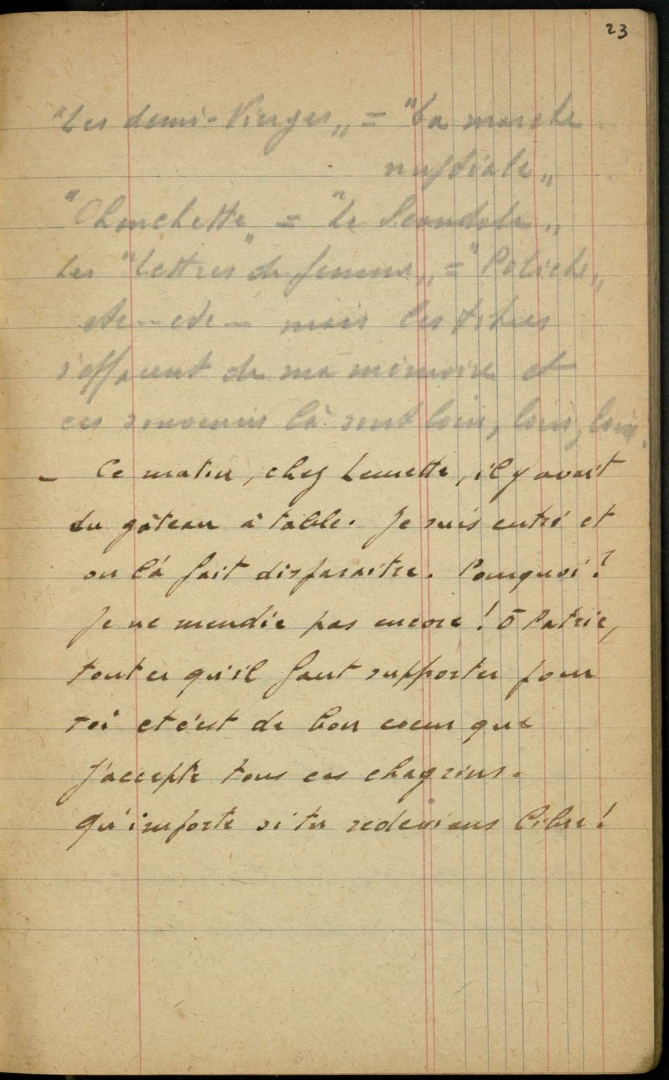 23
"Les demi-Vierges„ = "La marche
nuptiale„
"Chonchette" = "Le Scandale„
Les "Lettres de femmes„ = "Poliche„
etc — etc — mais les titres
s'effacent de ma mémoire et
ces souvenirs là sont loin, loin, loin.
- Ce matin, chez Leurette, il y avait
du gâteau à table. Je suis entré et
on l'a fait disparaitre. Pourquoi?
Je ne mendie pas encore! O Patrie,
tout ce qu'il faut supporter pour
toi et c'est de bon coeur que
j'accepte tous ces chagrins.
Qu'importe si tu redeviens libre!